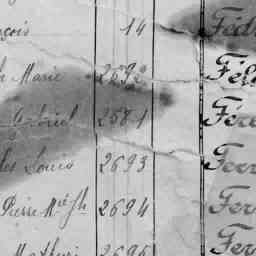 çois 14 Féd
Marie 2692 Fél
Gabriel 2581 Fére
les Louis 2693 Ferr
Pierre M^el Jh 2694 Fer
Mathuri 2695 Fer